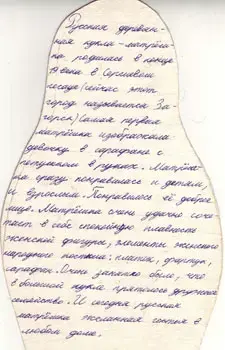 Русская деревян-
ная кукла-матрёш-
ка родилась в конце
19 века в Сергиевом
посаде (сейчас этот
город называется За-
горск) Самая первая
матрёшка изображала
девочку в сарафане с
петушком в руках. Матрёш-
ка сразу понравилась и детям,
и взрослым. Понравилось её доброе
лицо. Матрёшка очень удачно соче-
тает в себе спокойную плавность
женской фигуры, элементы женского
народного костюма: платок, фартук,
сарафан. Очень забавно было, что
в большой кукле пряталось дружное
семейство. И сегодня русская
матрёшка желанная гостья в
любом доме.